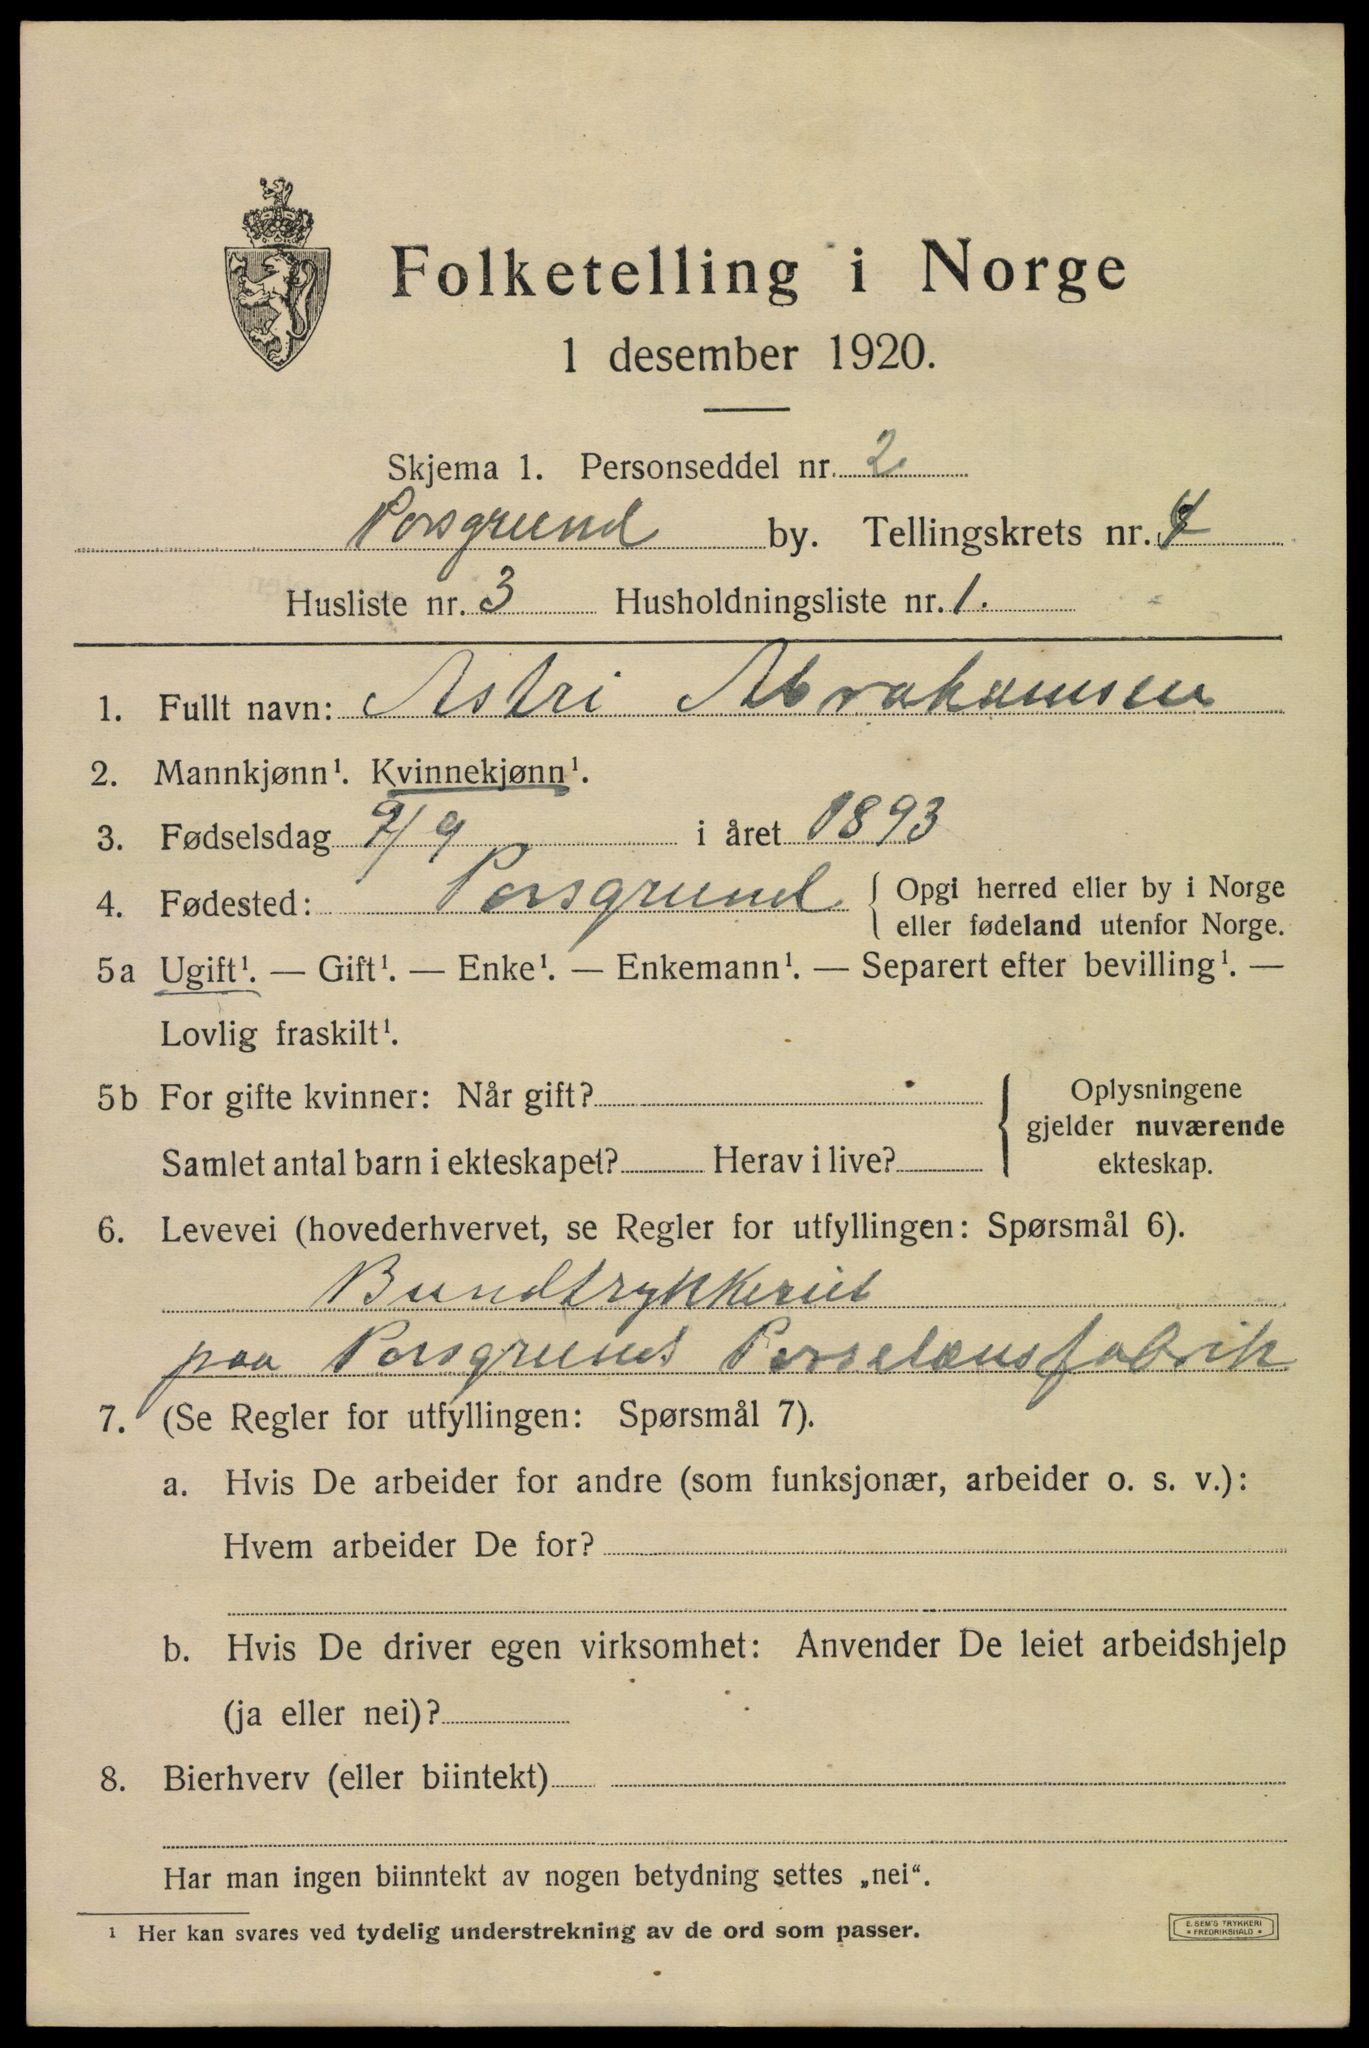 Folketelling i Norge
1 desember 1920.
Skjema 1. Personseddel nr. 2
Porsgrund by. Tellingskrets nr. 4
Husliste nr. 3 Husholdningsliste nr. 1.
1. Fullt navn: Astri Abrahamsen
2. Mannkjønn¹. Kvinnekjønn¹.
3. Fødselsdag 9/9 i året 1893
4. Fødested: Porsgrund { Opgi herred eller by i Norge
eller fødeland utenfor Norge.
5a Ugift¹. — Gift¹. — Enke¹. — Enkemann¹. — Separert efter bevilling¹. —
Lovlig fraskilt¹.
5b For gifte kvinner: Når gift? { Oplysningene
gjelder nuværende
Samlet antal barn i ekteskapet? Herav i live? ekteskap.
6. Levevei (hovederhvervet, se Regler for utfyllingen: Spørsmål 6).
Bundtrykkeriet
paa Porsgrunds Porselænsfabrik
7. (Se Regler for utfyllingen: Spørsmål 7).
a. Hvis De arbeider for andre (som funksjonær, arbeider o. s. v.):
Hvem arbeider De for?
b. Hvis De driver egen virksomhet: Anvender De leiet arbeidshjelp
(ja eller nei)?
8. Bierhverv (eller biintekt)
Har man ingen biinntekt av nogen betydning settes „nei“.
¹ Her kan svares ved tydelig understrekning av de ord som passer.
E. SEM'S TRYKKERI
* FREDRIKSHALD *